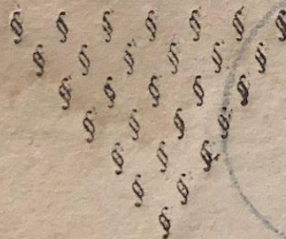 § § § § § § §
§ § § § § §
§ § § § §
§ § § §
§ § §
§ §
§